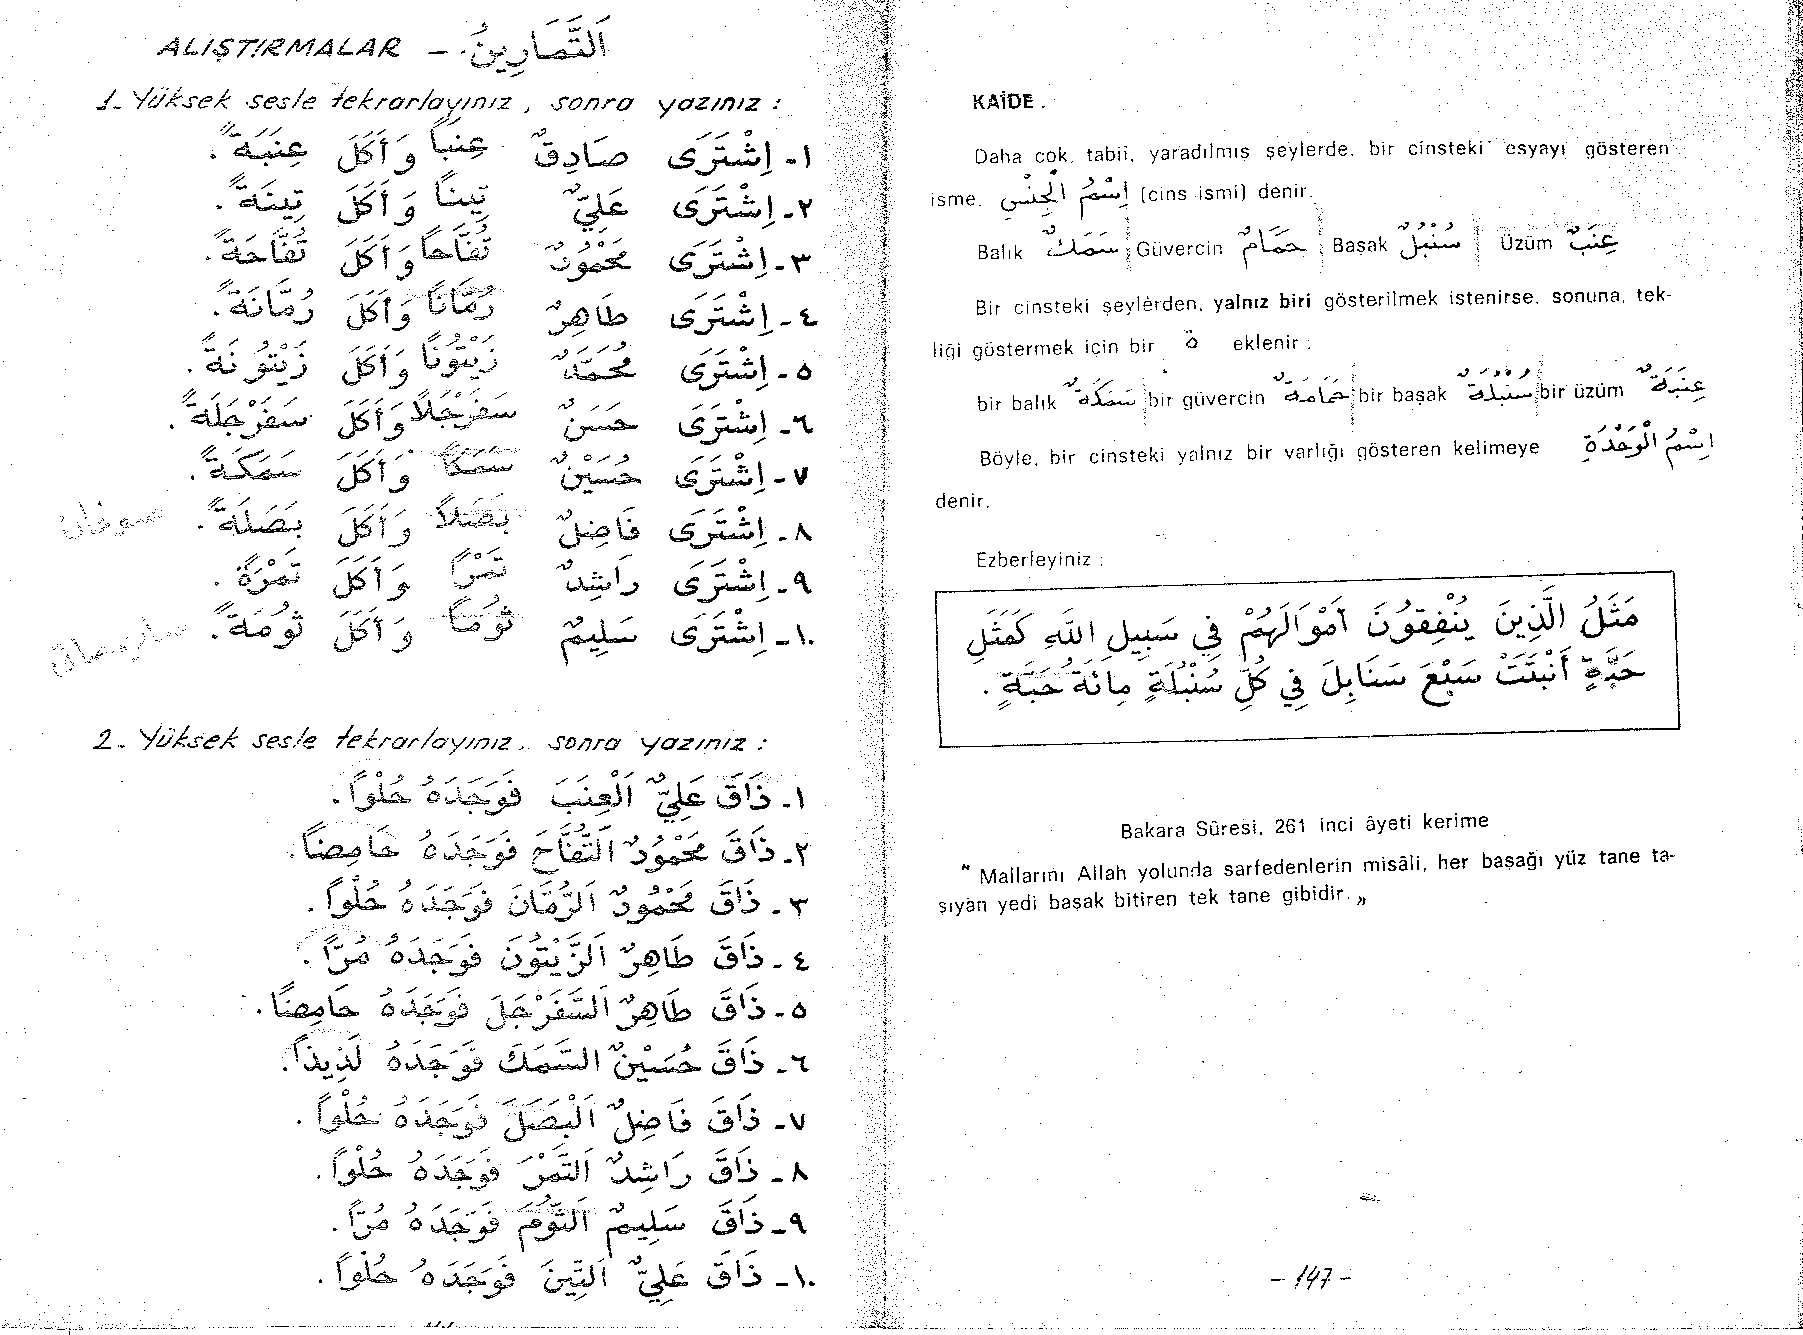 ALIŞTIRMALAR – اَلتَّمَارِينُ.
1- Yüksek sesle tekrarlayınız, sonra yazınız :
١- اِشْتَرَى صَادِقٌ عِنَباً وَأَكَلَ عِنَبَةً.
٢- اِشْتَرَى عَلِيٌّ تِيناً وَأَكَلَ تِينَةً.
٣- اِشْتَرَى مَحْمُودٌ تُفَّاحاً وَأَكَلَ تُفَّاحَةً.
٤- اِشْتَرَى طَاهِرٌ رُمَّاناً وَأَكَلَ رُمَّانَةً.
٥- اِشْتَرَى مُحَمَّدٌ زَيْتُوناً وَأَكَلَ زَيْتُونَةً.
٦- اِشْتَرَى حَسَنٌ سَفَرْجَلاً وَأَكَلَ سَفَرْجَلَةً.
٧- اِشْتَرَى حُسَيْنٌ سَمَكاً وَأَكَلَ سَمَكَةً.
٨- اِشْتَرَى فَاضِلٌ بَصَلاً وَأَكَلَ بَصَلَةً.
٩- اِشْتَرَى رَاشِدٌ تَمْراً وَأَكَلَ تَمْرَةً.
١٠- اِشْتَرَى سَلِيمٌ ثُوماً وَأَكَلَ ثُومَةً.
2- Yüksek sesle tekrarlayınız, sonra yazınız :
١- ذَاقَ عَلِيٌّ اَلْعِنَبَ فَوَجَدَهُ حُلْواً.
٢- ذَاقَ مَحْمُودٌ اَلتُّفَّاحَ فَوَجَدَهُ حَامِضاً.
٣- ذَاقَ مَحْمُودٌ اَلرُّمَّانَ فَوَجَدَهُ حُلْواً.
٤- ذَاقَ طَاهِرٌ اَلزَّيْتُونَ فَوَجَدَهُ مُرّاً.
٥- ذَاقَ طَاهِرٌ اَلسَّفَرْجَلَ فَوَجَدَهُ حَامِضاً.
٦- ذَاقَ حُسَيْنٌ السَّمَكَ فَوَجَدَهُ لَذِيذاً.
٧- ذَاقَ فَاضِلٌ اَلْبَصَلَ فَوَجَدَهُ حُلْواً.
٨- ذَاقَ رَاشِدٌ اَلتَّمْرَ فَوَجَدَهُ حُلْواً.
٩- ذَاقَ سَلِيمٌ اَلثُّومَ فَوَجَدَهُ مُرّاً.
١٠- ذَاقَ عَلِيٌّ اَلتِّينَ فَوَجَدَهُ حُلْواً.
KAİDE.
Daha çok, tabii, yaradılmış şeylerde, bir cinsteki eşyayı gösteren
isme, اِسْمُ الْجِنْسِ (cins ismi) denir.
Balık سَمَكٌ Güvercin حَمَامٌ Başak سُنْبُلٌ Üzüm عِنَبٌ
Bir cinsteki şeylerden, yalnız biri gösterilmek istenirse, sonuna, tek-
liği göstermek için bir ةٌ eklenir :
bir balık سَمَكَةٌ bir güvercin حَمَامَةٌ bir başak سُنْبُلَةٌ bir üzüm عِنَبَةٌ
Böyle, bir cinsteki yalnız bir varlığı gösteren kelimeye اِسْمُ الْوَحْدَةِ
denir.
Ezberleyiniz :
مَثَلُ الَّذِينَ يُنْفِقُونَ أَمْوَالَهُمْ فِي سَبِيلِ اللَّهِ كَمَثَلِ
حَبَّةٍ أَنْبَتَتْ سَبْعَ سَنَابِلَ فِي كُلِّ سُنْبُلَةٍ مِائَةُ حَبَّةٍ.
Bakara Sûresi, 261 inci âyeti kerime
" Mallarını Allah yolunda sarfedenlerin misâli, her başağı yüz tane ta-
şıyan yedi başak bitiren tek tane gibidir. „
- 147 -